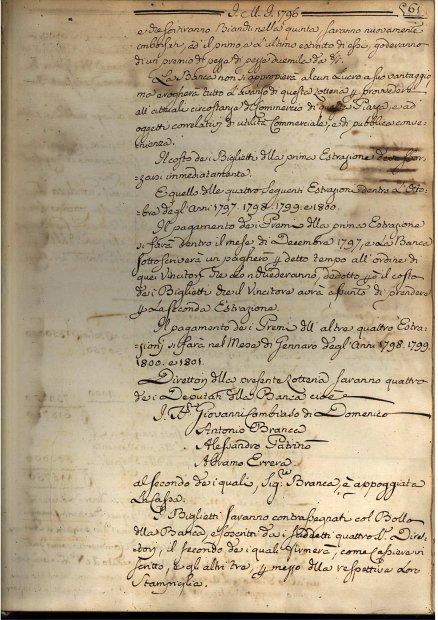 I. M. I. 1796
561
e che sortiranno Biandi nella quinta, saranno nuovamente
imborsati, ed il primo e l'ultimo estratto di essi, goderanno
di un premio di pezza di pezze duemila da
La Banca non si approprierà alcun Lucro a suo vantaggio
ma erogherà tutto l'avanzo di questa Lotteria p provedere
all'attuali circostanze di Commercio di questa Piazza, e ad
oggetti correlativi di utilità Commerciale, e di pubblica conve-
nienza.
Il costo dei Biglietti dlla prima Estrazione
immediatamente.
E quello dlle quattro seguenti Estrazioni dentro l'Otto-
bre degl'Anni 1797. 1798. 1799. e 1800.
Il pagamento dei Premi dlla prima Estrazione
si farà dentro il mese di Decembre 1797, e La Banca
sottoscriverà un paghero p detto tempo all'ordine di
quei Vincitori che Lo richiederanno, dedotto però il costo
dei Biglietti che il Vincitore avrà assunto di prendere
p La seconda Estrazione.
Il pagamento dei Premi dll'altre quattro Estra-
zioni si farà nel Mese di Gennaro degl'Anni 1798. 1799.
1800. e 1801.
Direttori dlla presente Lotteria saranno quattro
dei Deputati dlla Banca cioè
Giovanni Combiaso di Domenico
Antonio Branca
Alessandro Patrino
Abramo Errera
al secondo dei quali, Sigr Branca, è appoggiata
La Cassa.
I Biglietti saranno contrassegnati col Bollo
dlla Banca, e sottoscritti da i suddetti quattro Dire-
ttori, il secondo dei quali firmerà, come Cassiere in
scritto, e gli altri tre, p mezzo dlla respettiva Loro
Stampiglia.